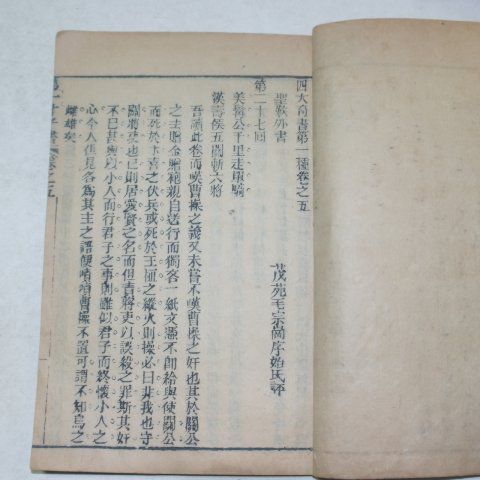 四大奇書第一種卷之五
聖歎外書
茂苑毛宗崗序始氏評
第二十七回
美髯公千里走單騎
漢壽侯五關斬六將
吾讀此卷而嘆曹操之義又未嘗不嘆曹操之奸也其於關公
之主贈金贈袍親自送行而獨吝一紙文憑不即給與使關公
而死於卞喜之伏兵或死於王植之縱火則操必曰非我也守
關將吏也已則居愛賢之名而但責將吏以誤殺之罪斯其奸
不已甚與以小人而行君子之事則雖似君子而終懷小人之
心今人但見各爲其主之語便嘖嘖曹操不置可謂不知烏之
雌雄矣